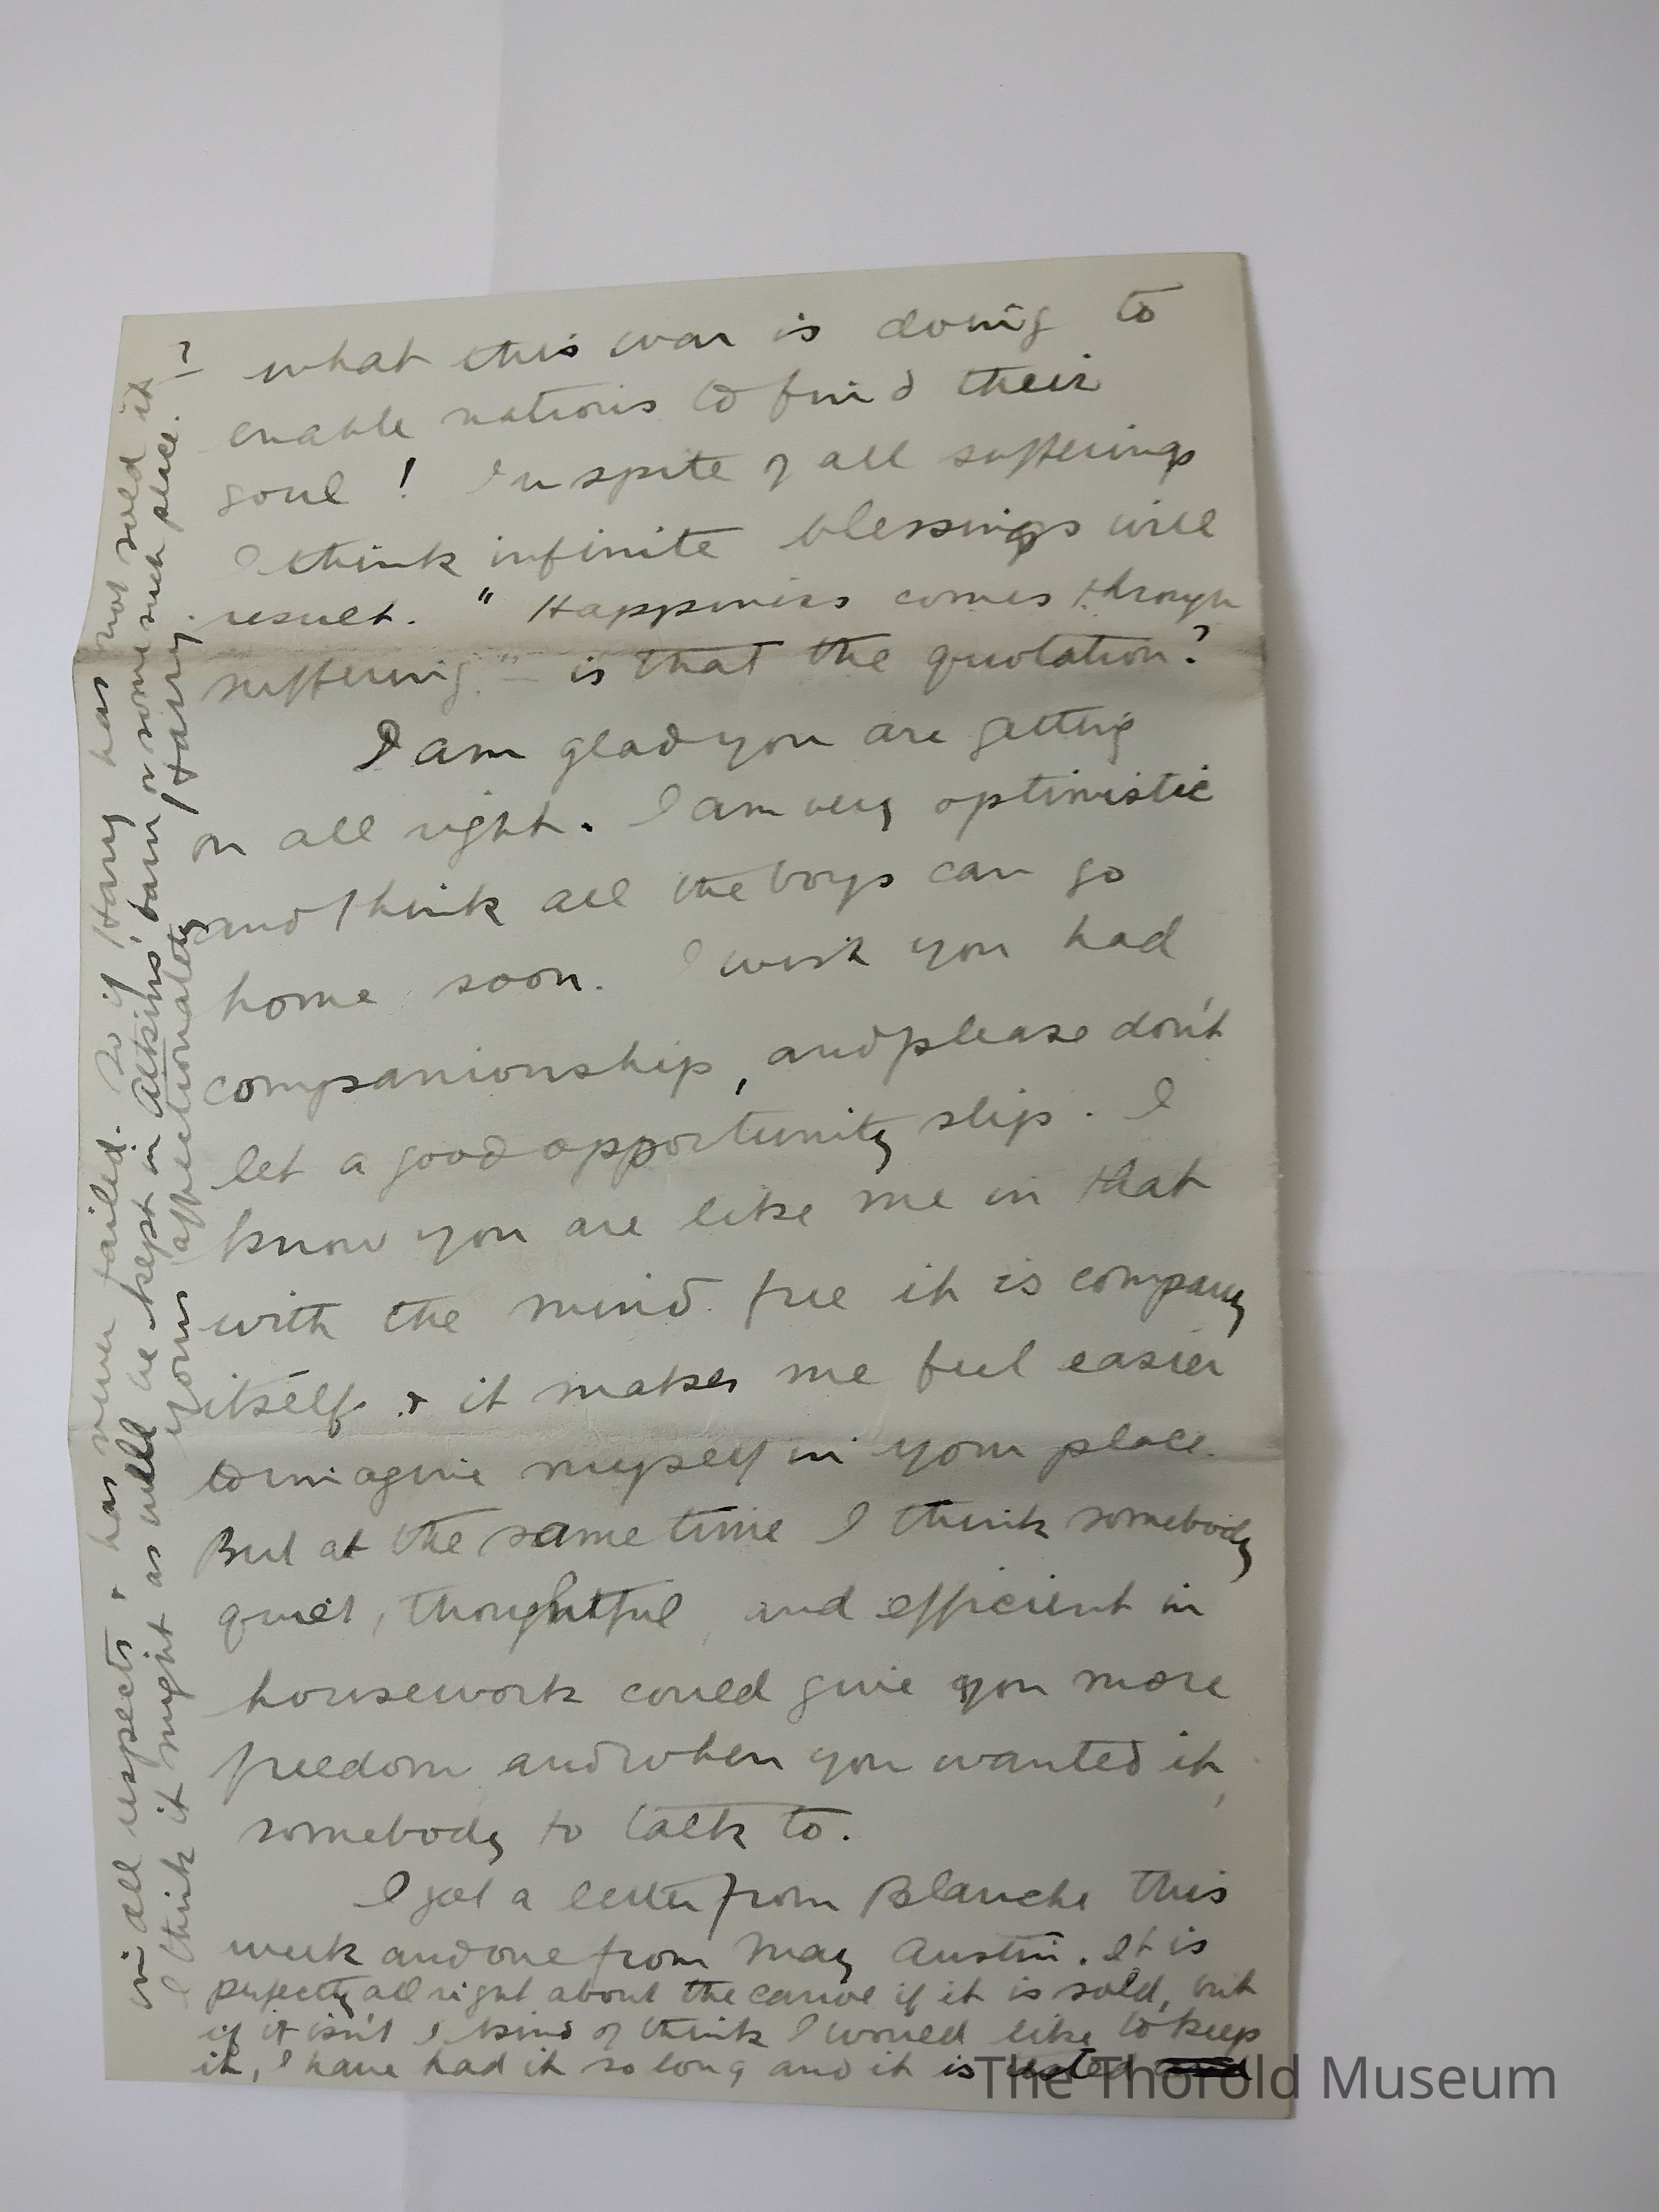 what this war is doing to
enable nations to find their
soul! In spite of all sufferings
I think infinite blessings will
result. "Happiness comes through
suffering" – is that the quotation?
I am glad you are getting
on all right. I am very optimistic
and think all the boys can go
home soon. I wish you had
companionship, and please don't
let a good opportunity slip. I
know you are like me in that
with the mind free it is company
itself & it makes me feel easier
to imagine myself in your place.
But at the same time I think somebody
quiet, thoughtful, and efficient in
housework could give you more
freedom and when you wanted it,
somebody to talk to.
I got a letter from Blanche this
week and one from May Austin. It is
perfectly all right about the canoe if it is sold, but
if it isn't I kind of think I would like to keep
it, I have had it so long and it is tested
in all respects & has never failed. So if Harry has not sold it
I think it might as well be kept in Atkins' barn or some such place. – ?
yours affectionately Harry.
The Thorold Museum